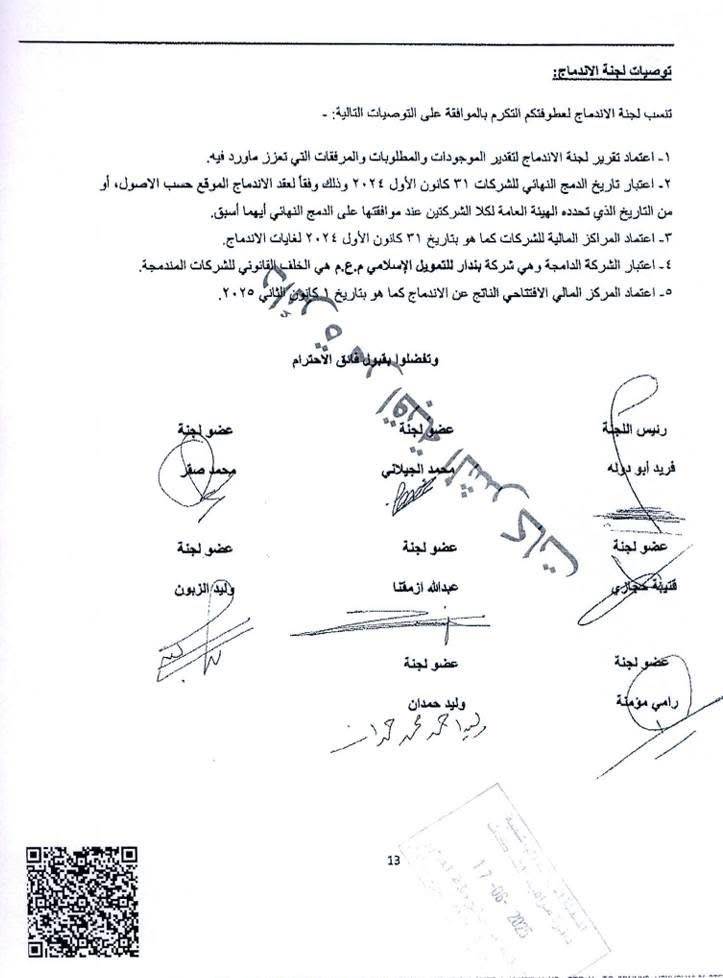 توصيات لجنة الاندماج:
تنسب لجنة الاندماج لعطوفتكم التكرم بالموافقة على التوصيات التالية: -
١- اعتماد تقرير لجنة الاندماج لتقدير الموجودات والمطلوبات والمرفقات التي تعزز ماورد فيه.
٢- اعتبار تاريخ الدمج النهائي للشركات ٣١ كانون الأول ٢٠٢٤ وذلك وفقاً لعقد الاندماج الموقع حسب الاصول، أو
من التاريخ الذي تحدده الهيئة العامة لكلا الشركتين عند موافقتها على الدمج النهائي أيهما أسبق.
٣- اعتماد المراكز المالية للشركات كما هو بتاريخ ٣١ كانون الأول ٢٠٢٤ لغايات الاندماج.
٤- اعتبار الشركة الدامجة وهي شركة بندار للتمويل الإسلامي م.ع.م هي الخلف القانوني للشركات المندمجة.
٥- اعتماد المركز المالي الافتتاحي الناتج عن الاندماج كما هو بتاريخ ١ كانون الثاني ٢٠٢٥.
وتفضلوا بقبول فائق الاحترام
رئيس اللجنة عضو لجنة عضو لجنة
فريد أبو دوله محمد الجيلاني محمد صقر
عضو لجنة عضو لجنة عضو لجنة
قتيبة حجازي عبدالله ازمقنا وليد الزبون
عضو لجنة عضو لجنة
رامي مؤمنة وليد حمدان
وليد احمد محمد حمدان
13
17-06-2025